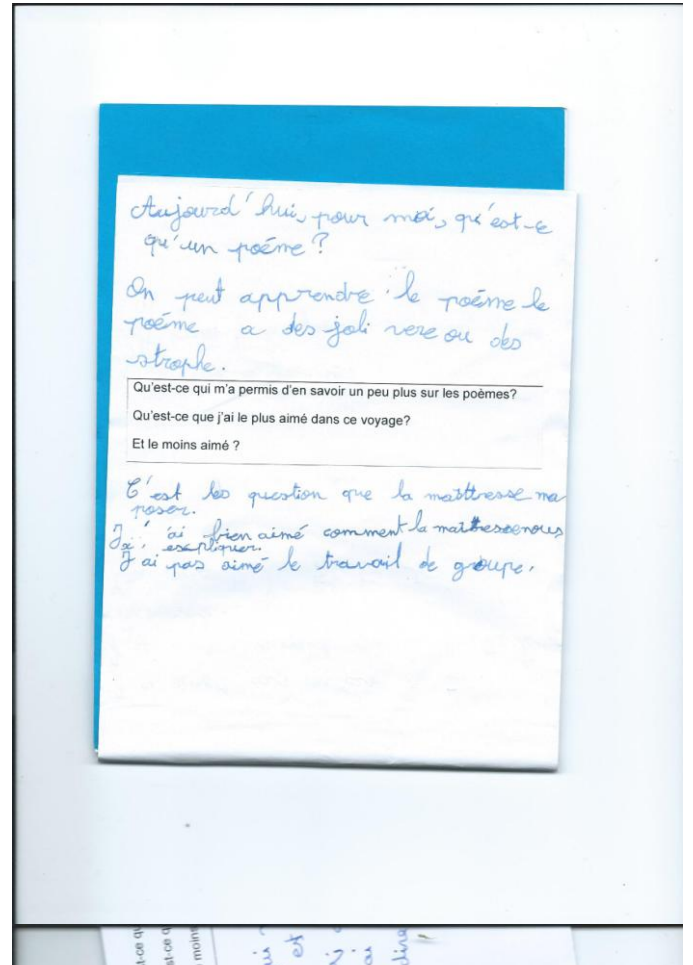 Aujourd'hui, pour moi, qu'est-ce
qu'un poéme?
On peut apprendre le poéme le
poéme a des joli vere ou des
strophe.
Qu'est-ce qui m'a permis d'en savoir un peu plus sur les poèmes?
Qu'est-ce que j'ai le plus aimé dans ce voyage?
Et le moins aimé ?
C'est les question que la maîttresse ma
poser.
J'ai bien aimé comment la maîtresse nous
expliquer.
J'ai pas aimé le travail de groupe.
st-ce q
moins
et